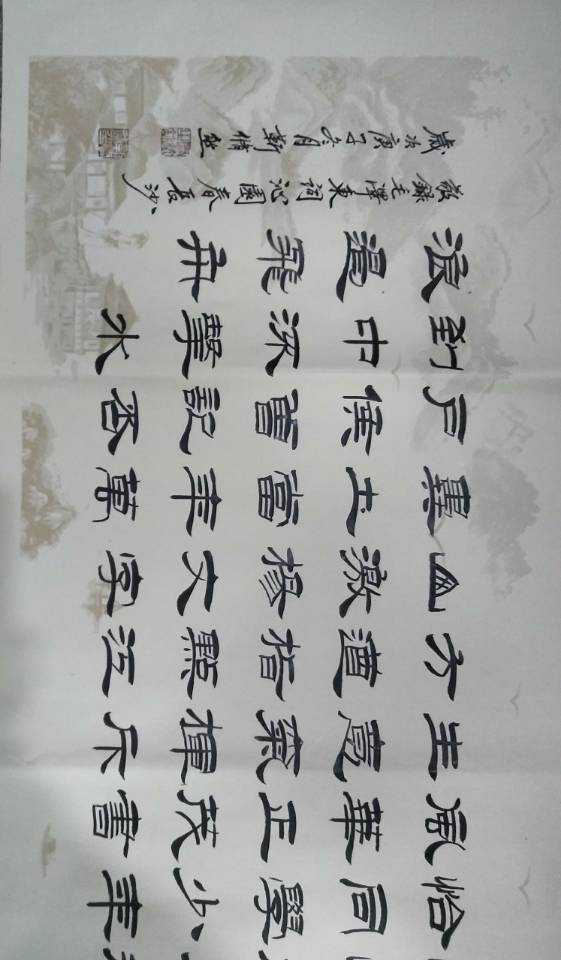 恰同學少年
風華正茂書
生意氣揮斥
方遒指點江
山激揚文字
糞土當年萬
戶侯曾記否
到中流擊水
浪遏飛舟
敬錄毛澤東詞沁園春長沙
歲次庚子冬月靳